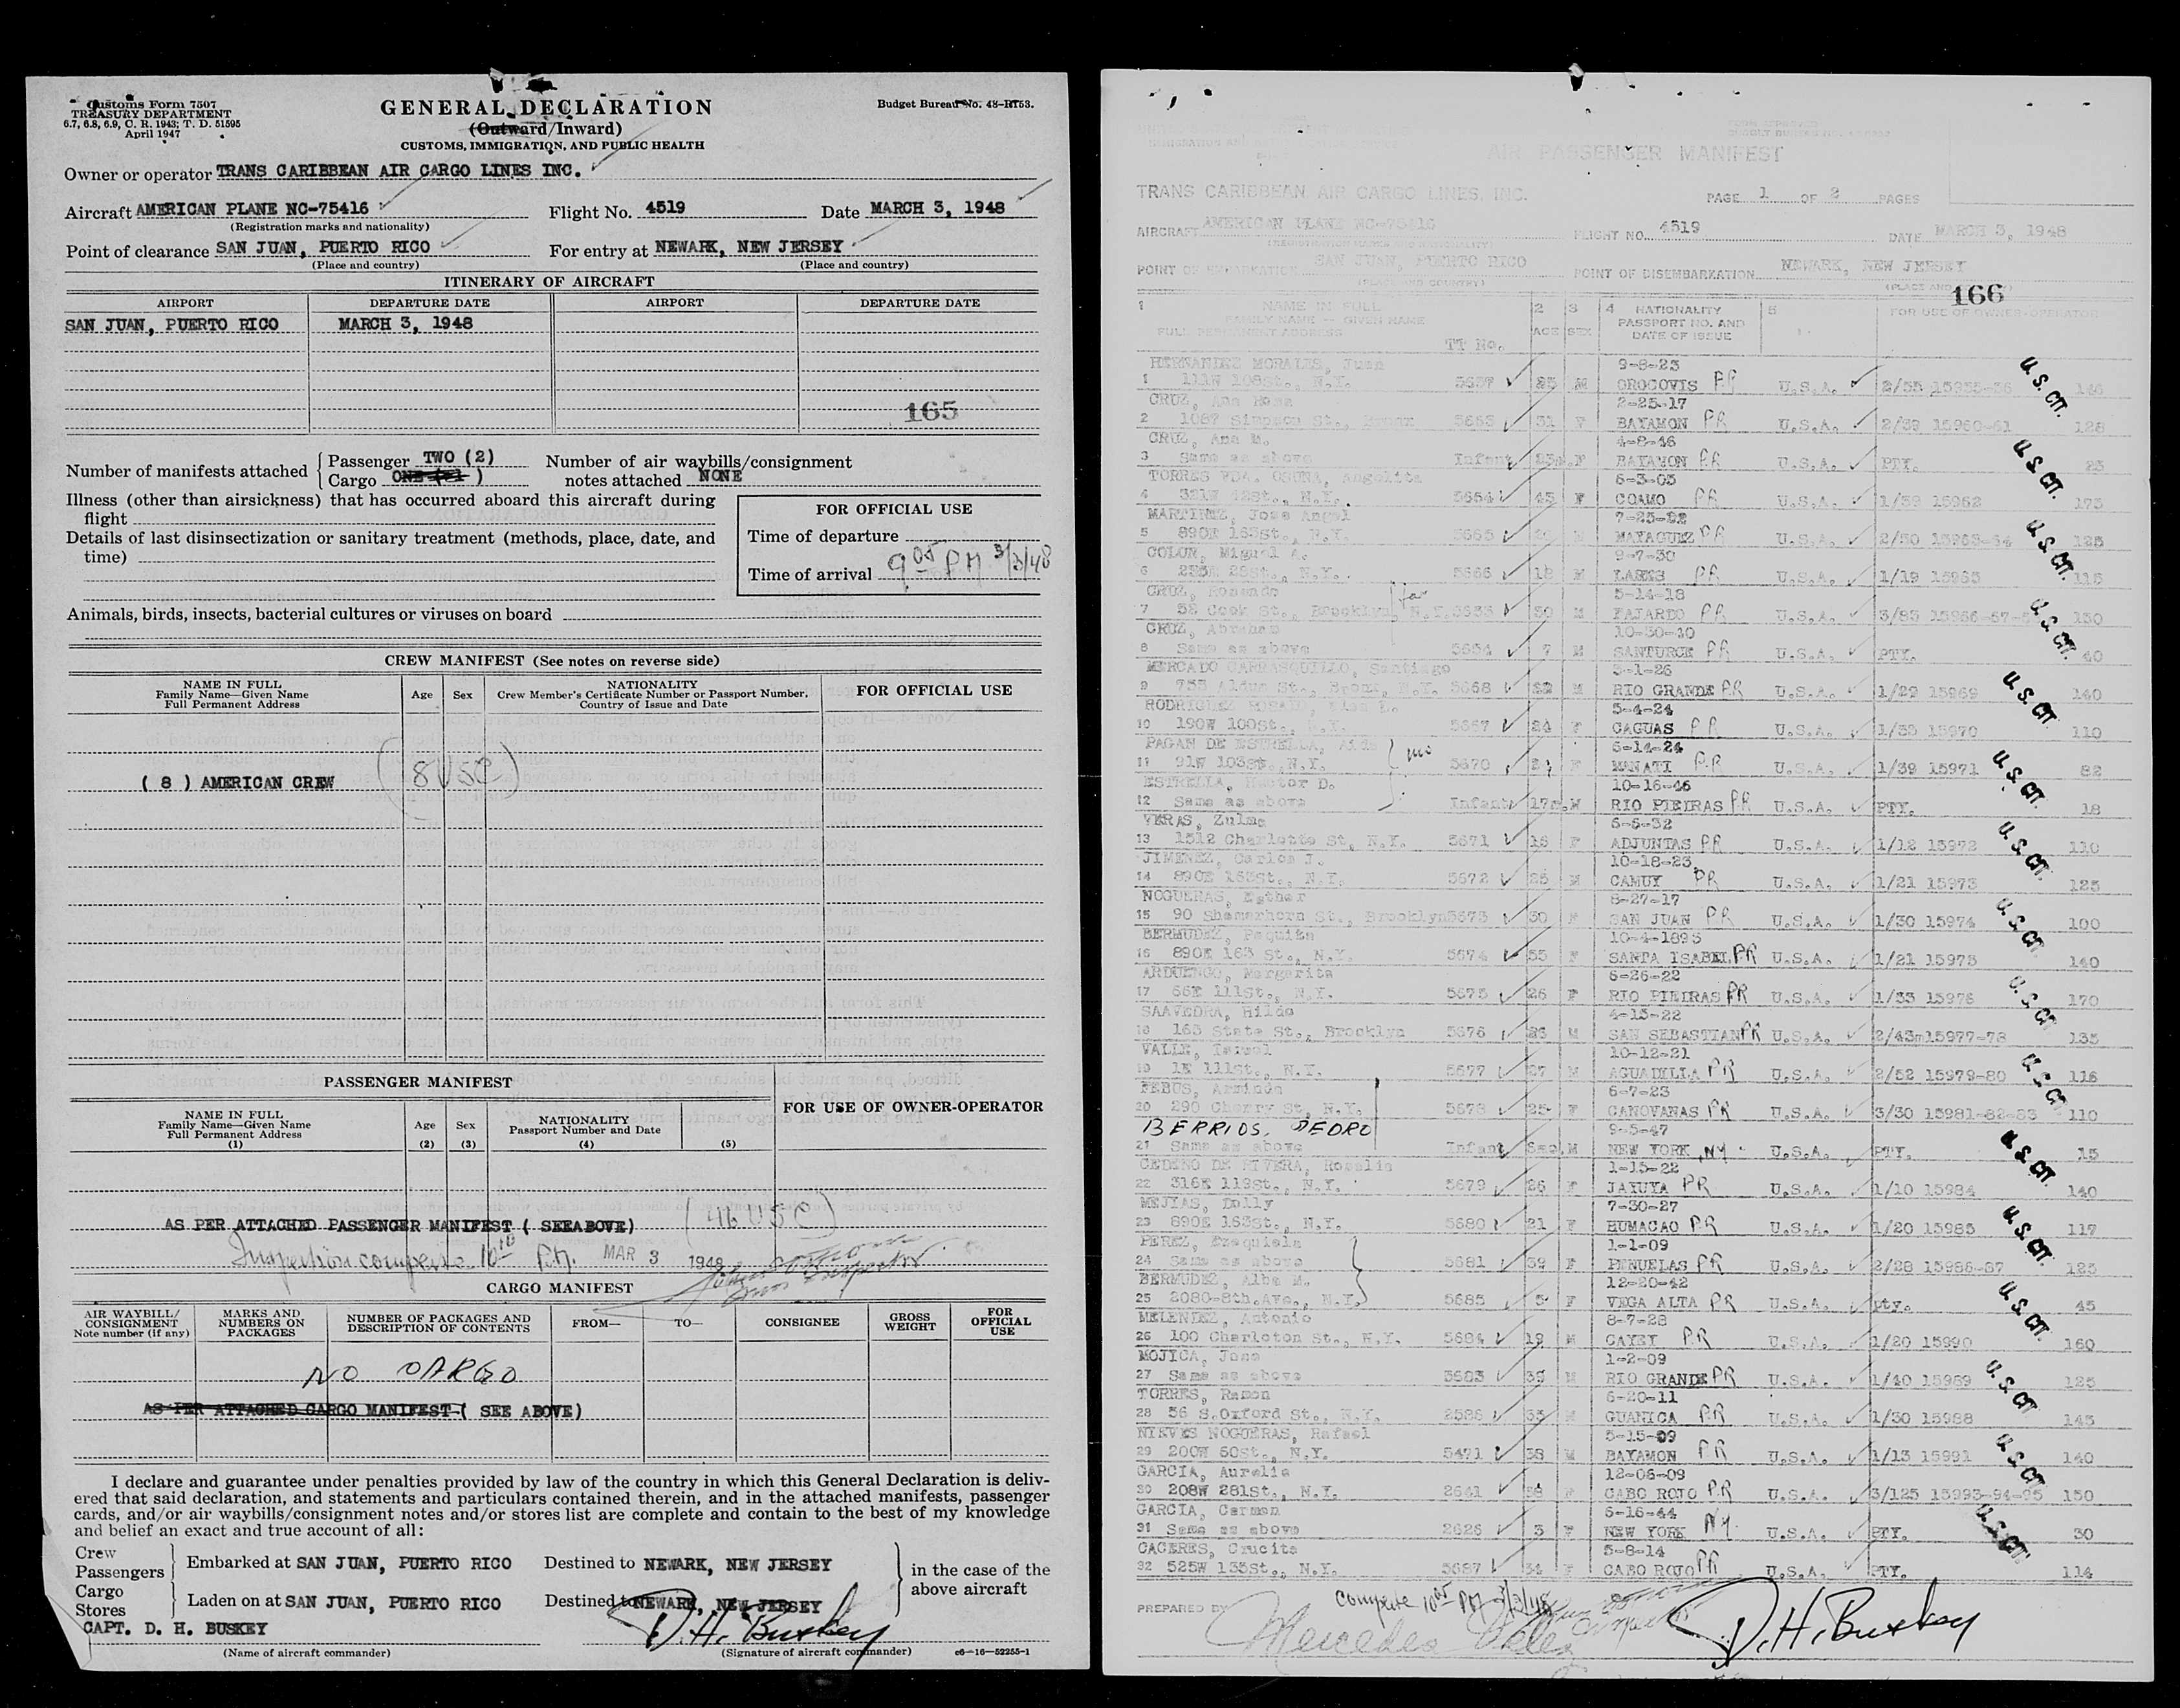 Customs Form 7507
TREASURY DEPARTMENT
6.7, 6.8, 6.9, C. R. 1943; T. D. 51595
April 1947
GENERAL DECLARATION
(Outward/Inward)
CUSTOMS, IMMIGRATION, AND PUBLIC HEALTH
Budget Bureau No. 48-R153.
Owner or operator TRANS CARIBBEAN AIR CARGO LINES INC.
Aircraft AMERICAN PLANE NC-75416 Flight No. 4519 Date MARCH 3, 1948
(Registration marks and nationality)
Point of clearance SAN JUAN, PUERTO RICO For entry at NEWARK, NEW JERSEY
(Place and country) (Place and country)
ITINERARY OF AIRCRAFT
AIRPORT DEPARTURE DATE AIRPORT DEPARTURE DATE
SAN JUAN, PUERTO RICO MARCH 3, 1948
165
Number of manifests attached Passenger TWO (2) Number of air waybills/consignment
Cargo ONE ) notes attached NONE
Illness (other than airsickness) that has occurred aboard this aircraft during
flight
Details of last disinsectization or sanitary treatment (methods, place, date, and
time)
FOR OFFICIAL USE
Time of departure
Time of arrival 9 05 PM 3/3/48
Animals, birds, insects, bacterial cultures or viruses on board
CREW MANIFEST (See notes on reverse side)
NAME IN FULL
Family Name—Given Name
Full Permanent Address
Age Sex
NATIONALITY
Crew Member's Certificate Number or Passport Number,
Country of Issue and Date
FOR OFFICIAL USE
( 8 ) AMERICAN CREW (8 USC)
PASSENGER MANIFEST
NAME IN FULL
Family Name—Given Name
Full Permanent Address
(1)
Age
(2)
Sex
(3)
NATIONALITY
Passport Number and Date
(4)
(5)
FOR USE OF OWNER-OPERATOR
AS PER ATTACHED PASSENGER MANIFEST ( SEEABOVE) (46 USC)
Inspection complete 10 10 P.M. MAR 3 1948
CARGO MANIFEST
AIR WAYBILL/
CONSIGNMENT
Note number (if any)
MARKS AND
NUMBERS ON
PACKAGES
NUMBER OF PACKAGES AND
DESCRIPTION OF CONTENTS
FROM— TO— CONSIGNEE
GROSS
WEIGHT
FOR
OFFICIAL
USE
NO CARGO
AS PER ATTACHED CARGO MANIFEST ( SEE ABOVE)
I declare and guarantee under penalties provided by law of the country in which this General Declaration is deliv-
ered that said declaration, and statements and particulars contained therein, and in the attached manifests, passenger
cards, and/or air waybills/consignment notes and/or stores list are complete and contain to the best of my knowledge
and belief an exact and true account of all:
Crew
Passengers Embarked at SAN JUAN, PUERTO RICO Destined to NEWARK, NEW JERSEY
Cargo
Stores Laden on at SAN JUAN, PUERTO RICO Destined to NEWARK, NEW JERSEY
in the case of the
above aircraft
CAPT. D. H. BUSKEY D.H. Buskey
(Name of aircraft commander) (Signature of aircraft commander) c6—16—52255-1
AIR PASSENGER MANIFEST
TRANS CARIBBEAN AIR CARGO LINES, INC. PAGE 1 OF 2 PAGES
AIRCRAFT AMERICAN PLANE NC-75416 FLIGHT NO. 4519 DATE MARCH 3, 1948
POINT OF EMBARKATION SAN JUAN, PUERTO RICO POINT OF DISEMBARKATION NEWARK, NEW JERSEY
166
1 NAME IN FULL
FAMILY NAME — GIVEN NAME
FULL PERMANENT ADDRESS TT No.
2 AGE 3 SEX
4 NATIONALITY
PASSPORT NO. AND
DATE OF ISSUE
5 FOR USE OF OWNER-OPERATOR
HERNANDEZ MORALES, Juan 9-8-23
1 111W 108St., N.Y. 5657 25 M OROCOVIS PR U.S.A. 2/55 15955-56 146 U.S. CIT.
CRUZ, Ana Rosa 2-25-17
2 1087 Simpson St., Bronx 5663 31 F BAYAMON PR U.S.A. 2/39 15960-61 128
CRUZ, Ana M. 4-8-46
3 Same as above Infant 23m F BAYAMON PR U.S.A. PTY. 25 U.S. CIT.
TORRES VDA. OSUNA, Angelita 6-3-05
4 321W 42St., N.Y. 5664 43 F COAMO PR U.S.A. 1/39 15962 175
MARTINEZ, Jose Angel 7-25-22
5 890E 163St., N.Y. 5665 M MAYAGUEZ PR U.S.A. 2/50 15963-64 125 U.S. CIT.
COLON, Miguel A. 9-7-30
6 225E 28St., N.Y. 5666 18 M LARES PR U.S.A. 1/19 15965 115
CRUZ, Rosendo 5-14-18
7 52 Cook St., Brooklyn, N.Y. 5653 30 M FAJARDO PR U.S.A. 3/83 15966-67 130 U.S. CIT.
CRUZ, Abraham 10-30-40
8 Same as above 5654 7 M SANTURCE PR U.S.A. PTY. 40
MERCADO CARRASQUILLO, Santiago 3-1-26
9 753 Aldus St., Bronx, N.Y. 5668 22 M RIO GRANDE PR U.S.A. 1/29 15969 140 U.S. CIT.
RODRIGUEZ 5-4-24
10 190W 100St., N.Y. 5667 24 F CAGUAS PR U.S.A. 1/35 15970 110
PAGAN DE ESTRELLA, Aida 6-14-24
11 91W 103St., N.Y. 5670 F MANATI PR U.S.A. 1/39 15971 82 U.S. CIT.
ESTRELLA, Hector D. 10-16-46
12 Same as above Infant 17m M RIO PIEDRAS PR U.S.A. PTY. 18
VERAS, Zulma 6-6-32
13 1512 Charlotte St, N.Y. 5671 15 F ADJUNTAS PR U.S.A. 1/12 15972 110 U.S. CIT.
JIMENEZ, Carlos J. 10-18-23
14 890E 163St., N.Y. 5672 25 M CAMUY PR U.S.A. 1/21 15973 125
NOGUERAS, Esther 8-27-17
15 90 Shemerhorn St., Brooklyn 5673 30 F SAN JUAN PR U.S.A. 1/30 15974 100 U.S. CIT.
BERMUDEZ, Paquita 10-4-1893
16 890E 163 St., N.Y. 5674 55 F SANTA ISABEL PR U.S.A. 1/21 15975 140
ARDUENGO, Margarita 6-26-22
17 66E 111St., N.Y. 5675 26 F RIO PIEDRAS PR U.S.A. 1/33 15976 170 U.S. CIT.
SAAVEDRA, Hilda 4-15-22
18 163 State St., Brooklyn 5676 26 M SAN SEBASTIAN PR U.S.A. 2/43 15977-78 135
VALLE, Ismael 10-12-21
19 1E 111St., N.Y. 5677 27 M AGUADILLA PR U.S.A. 2/52 15979-80 116 U.S. CIT.
FEBUS, Armida 6-7-23
20 290 Cherry St, N.Y. 5678 25 F CANOVANAS PR U.S.A. 3/30 15981-82-83 110
BERRIOS, PEDRO 9-5-47
21 Same as above Infant M NEW YORK, NY U.S.A. PTY. 15 U.S. CIT.
CEDENO DE RIVERA, Rosalia 1-15-22
22 316E 118St., N.Y. 5679 26 F JAYUYA PR U.S.A. 1/10 15984 140
MEJIAS, Dolly 7-30-27
23 890E 163St., N.Y. 5680 21 F HUMACAO PR U.S.A. 1/20 15985 117 U.S. CIT.
PEREZ, Ezequiela 1-1-09
24 Same as above 5681 39 F PENUELAS PR U.S.A. 2/28 15986-87 125
BERMUDEZ, Alba M. 12-20-42
25 2080-8th.Ave., N.Y. 5685 5 F VEGA ALTA PR U.S.A. pty. 45 U.S. CIT.
MELENDEZ, Antonio 8-7-28
26 100 Charleton St., N.Y. 5684 19 M CAYEY PR U.S.A. 1/20 15990 160
MOJICA, Jose 1-2-09
27 Same as above 5683 39 M RIO GRANDE PR U.S.A. 1/40 15989 125 U.S. CIT.
TORRES, Ramon 6-20-11
28 56 S.Oxford St., N.Y. 2586 M GUANICA PR U.S.A. 1/30 15988 145
NIEVES NOGUERAS, Rafael 5-15-09
29 200W 60St., N.Y. 5471 38 M BAYAMON PR U.S.A. 1/13 15991 140 U.S. CIT.
GARCIA, Aurelia 12-06-09
30 208W 281St., N.Y. 2641 38 F CABO ROJO PR U.S.A. 3/125 15993-94-95 150
GARCIA, Carmen 6-16-44
31 Same as above 2626 3 F NEW YORK NY. U.S.A. PTY. 30 U.S. CIT.
CACERES, Crucita 5-8-14
32 525W 133St., N.Y. 5687 34 F CABO ROJO PR U.S.A. PTY. 114
PREPARED BY Complete 10 05 PM 3/3/48
Mercedes D.H. Buskey